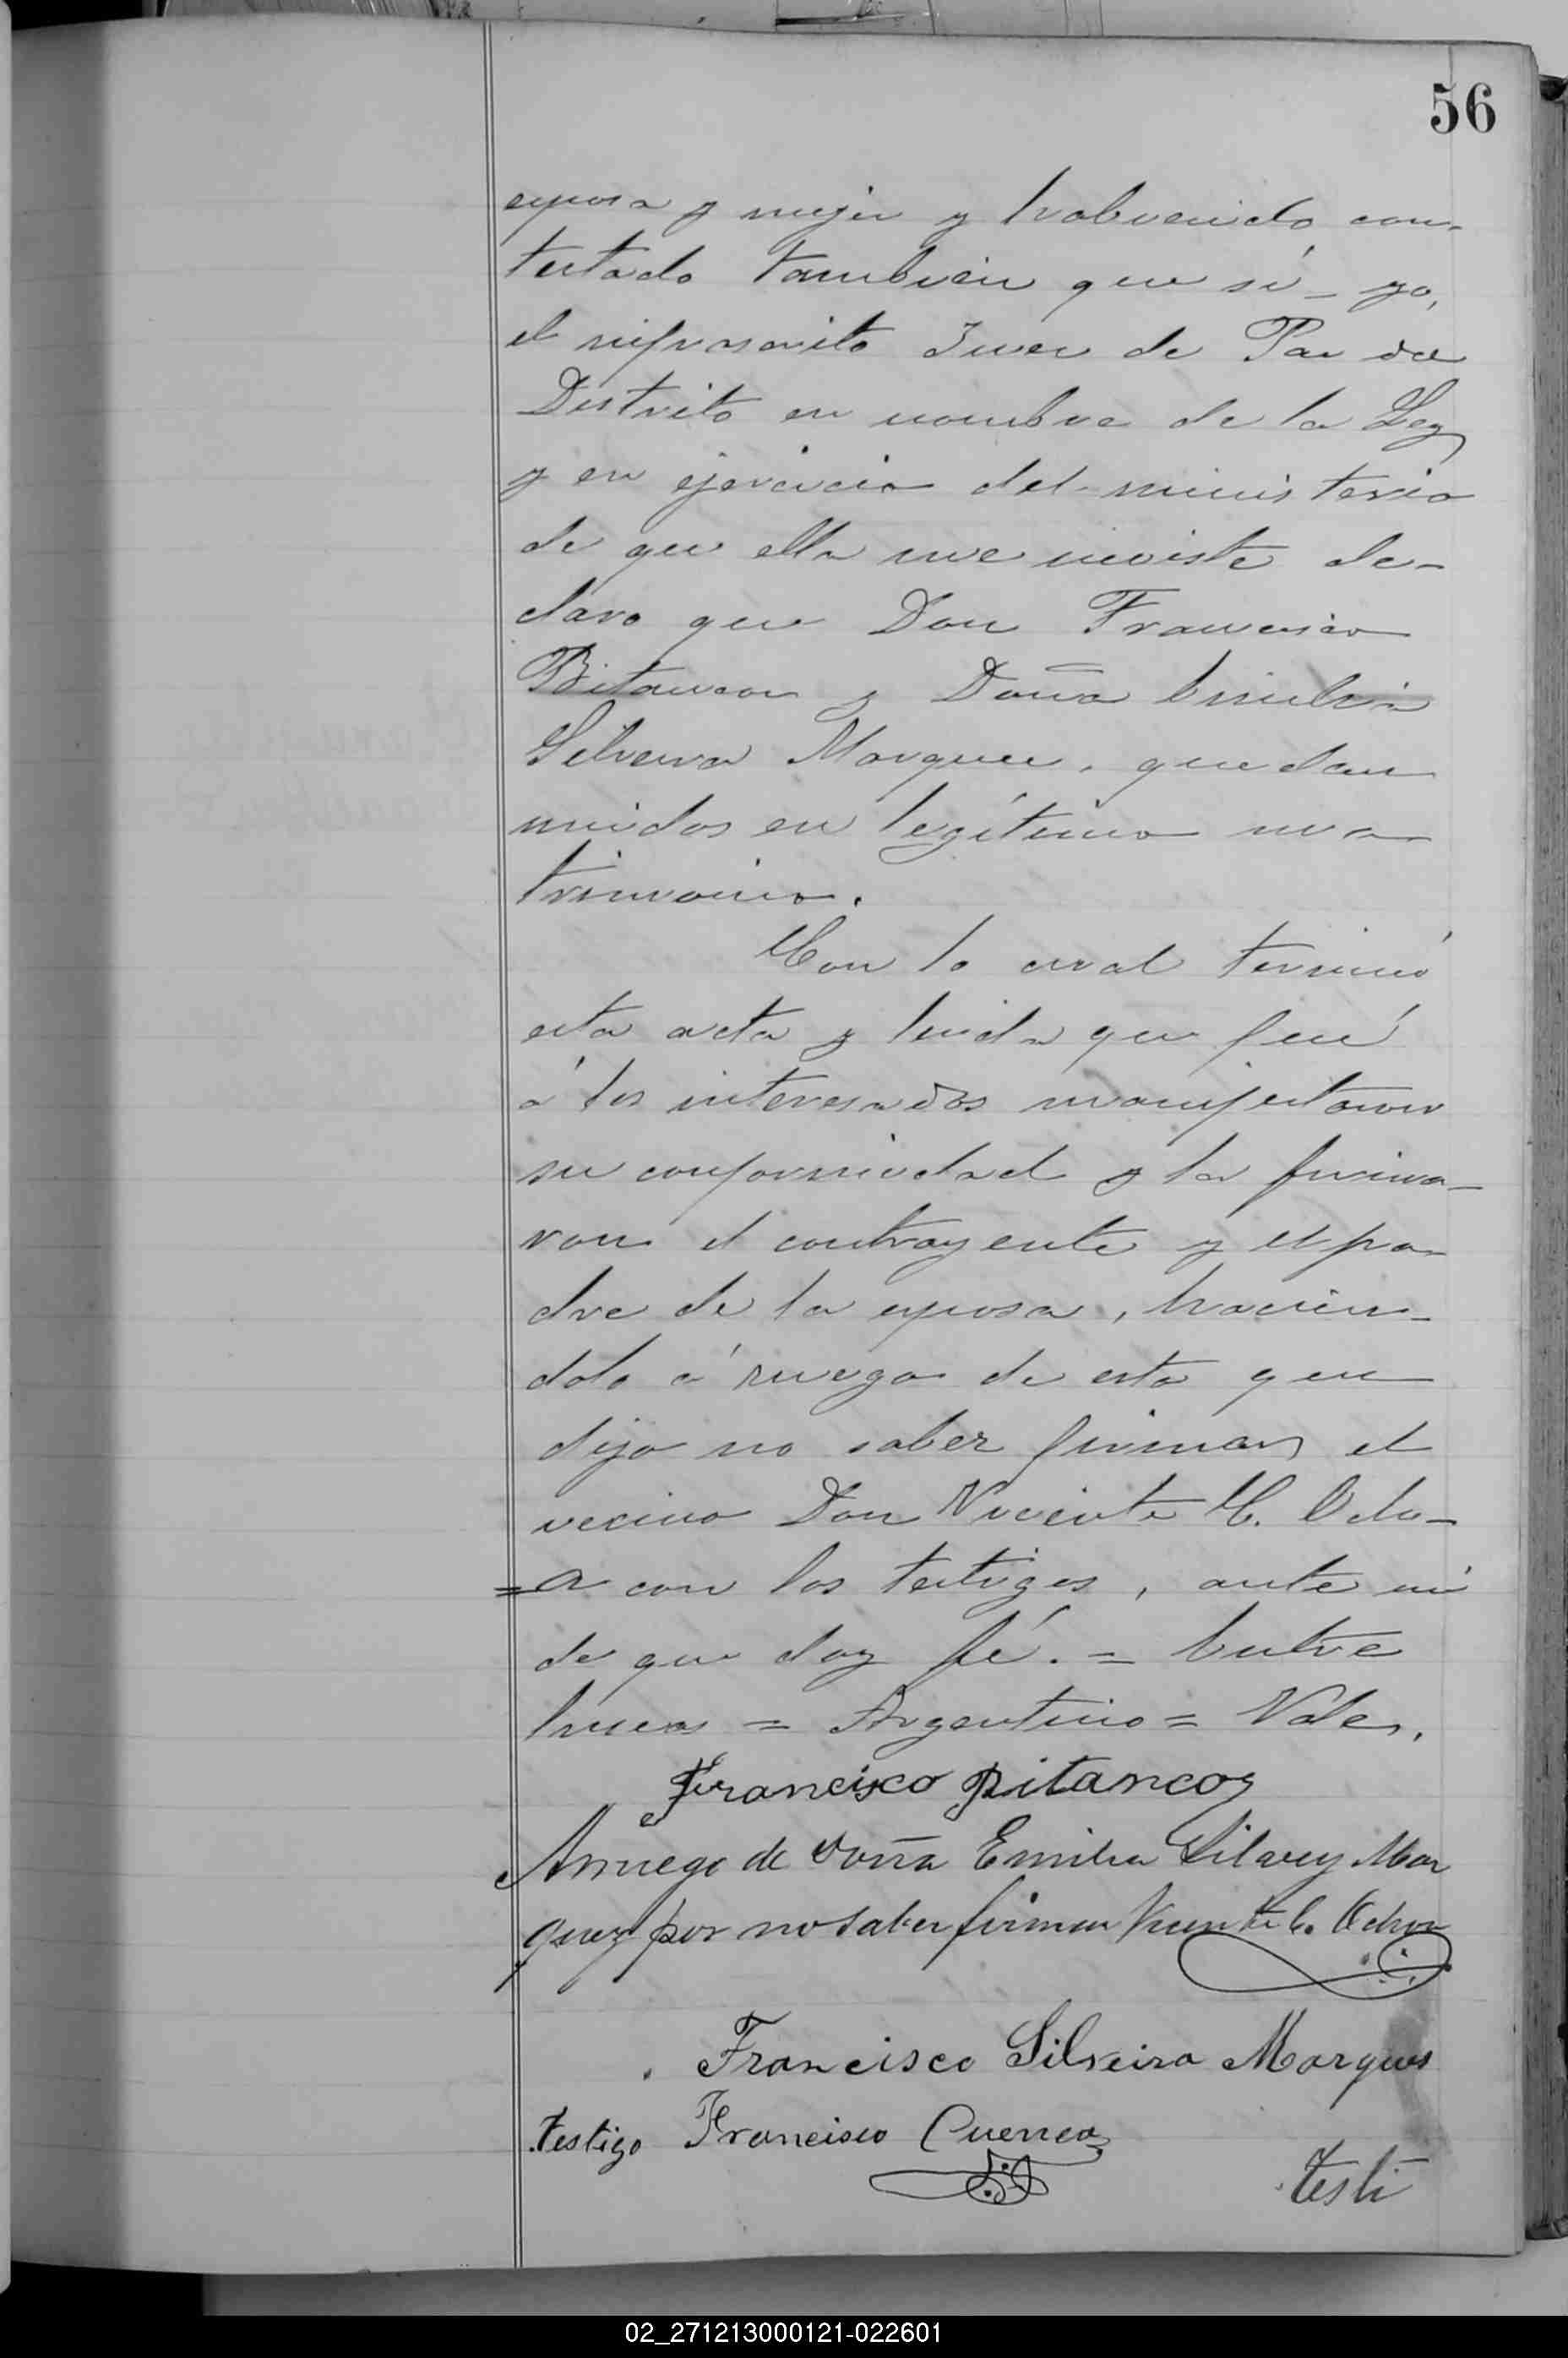 56
esposa y mujer y habiendo con-
testado tambien que sí – yo,
el infrascrito Juez de Paz del
Distrito en nombre de la Ley
y en ejercicio del ministerio
de que ella me inviste de-
claro que Don Francisco
Bitancor y Doña Emilia
Silveira Marquez, quedan
unidos en legítimo ma
trimonio.
Con lo cual terminó
esta acta y leida que fué
á los interesados manifestaron
su conformidad y la firma-
ron el contrayente y el pa-
dre de la esposa, hacien-
dolo á ruego de esta que
dijo no saber firmar el
vecino Don Vicente C. Ocho-
=a con los testigos, ante mi
de que doy fé. = Entre
lineas = Argentino = Vale.
Francisco Bitancor
Arruego de Doña Emilia Silvey Mar
quez por no saber firmar Vicente C. Ochoa
Francisco Silveira Marques
testigo Francisco Cuenca
testi
02_271213000121-022601